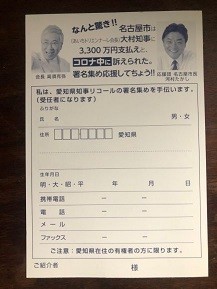 なんと驚き!!
名古屋市は
(あいちトリエンナーレ会長)大村知事に
3,300万円支払えと、
コロナ中に訴えられた。
署名集め応援してちょう!!
会長 高須克弥
応援団 名古屋市長
河村たかし
私は、愛知県知事リコールの署名集めを手伝います。
(受任者になります)
ふりがな
氏 名
男・女
住所
愛知県
生年月日
明・大・昭・平 年 月 日
携帯電話 ー ー
電 話 ー ー
メ ー ル
ファックス ー ー
ご注意:愛知県在住の有権者の方に限ります。
ご紹介者 様